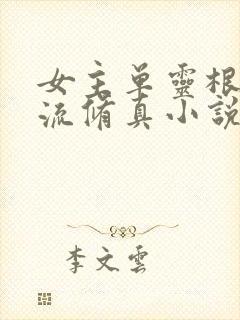 女主单靈根
流脩真小說
李文雲